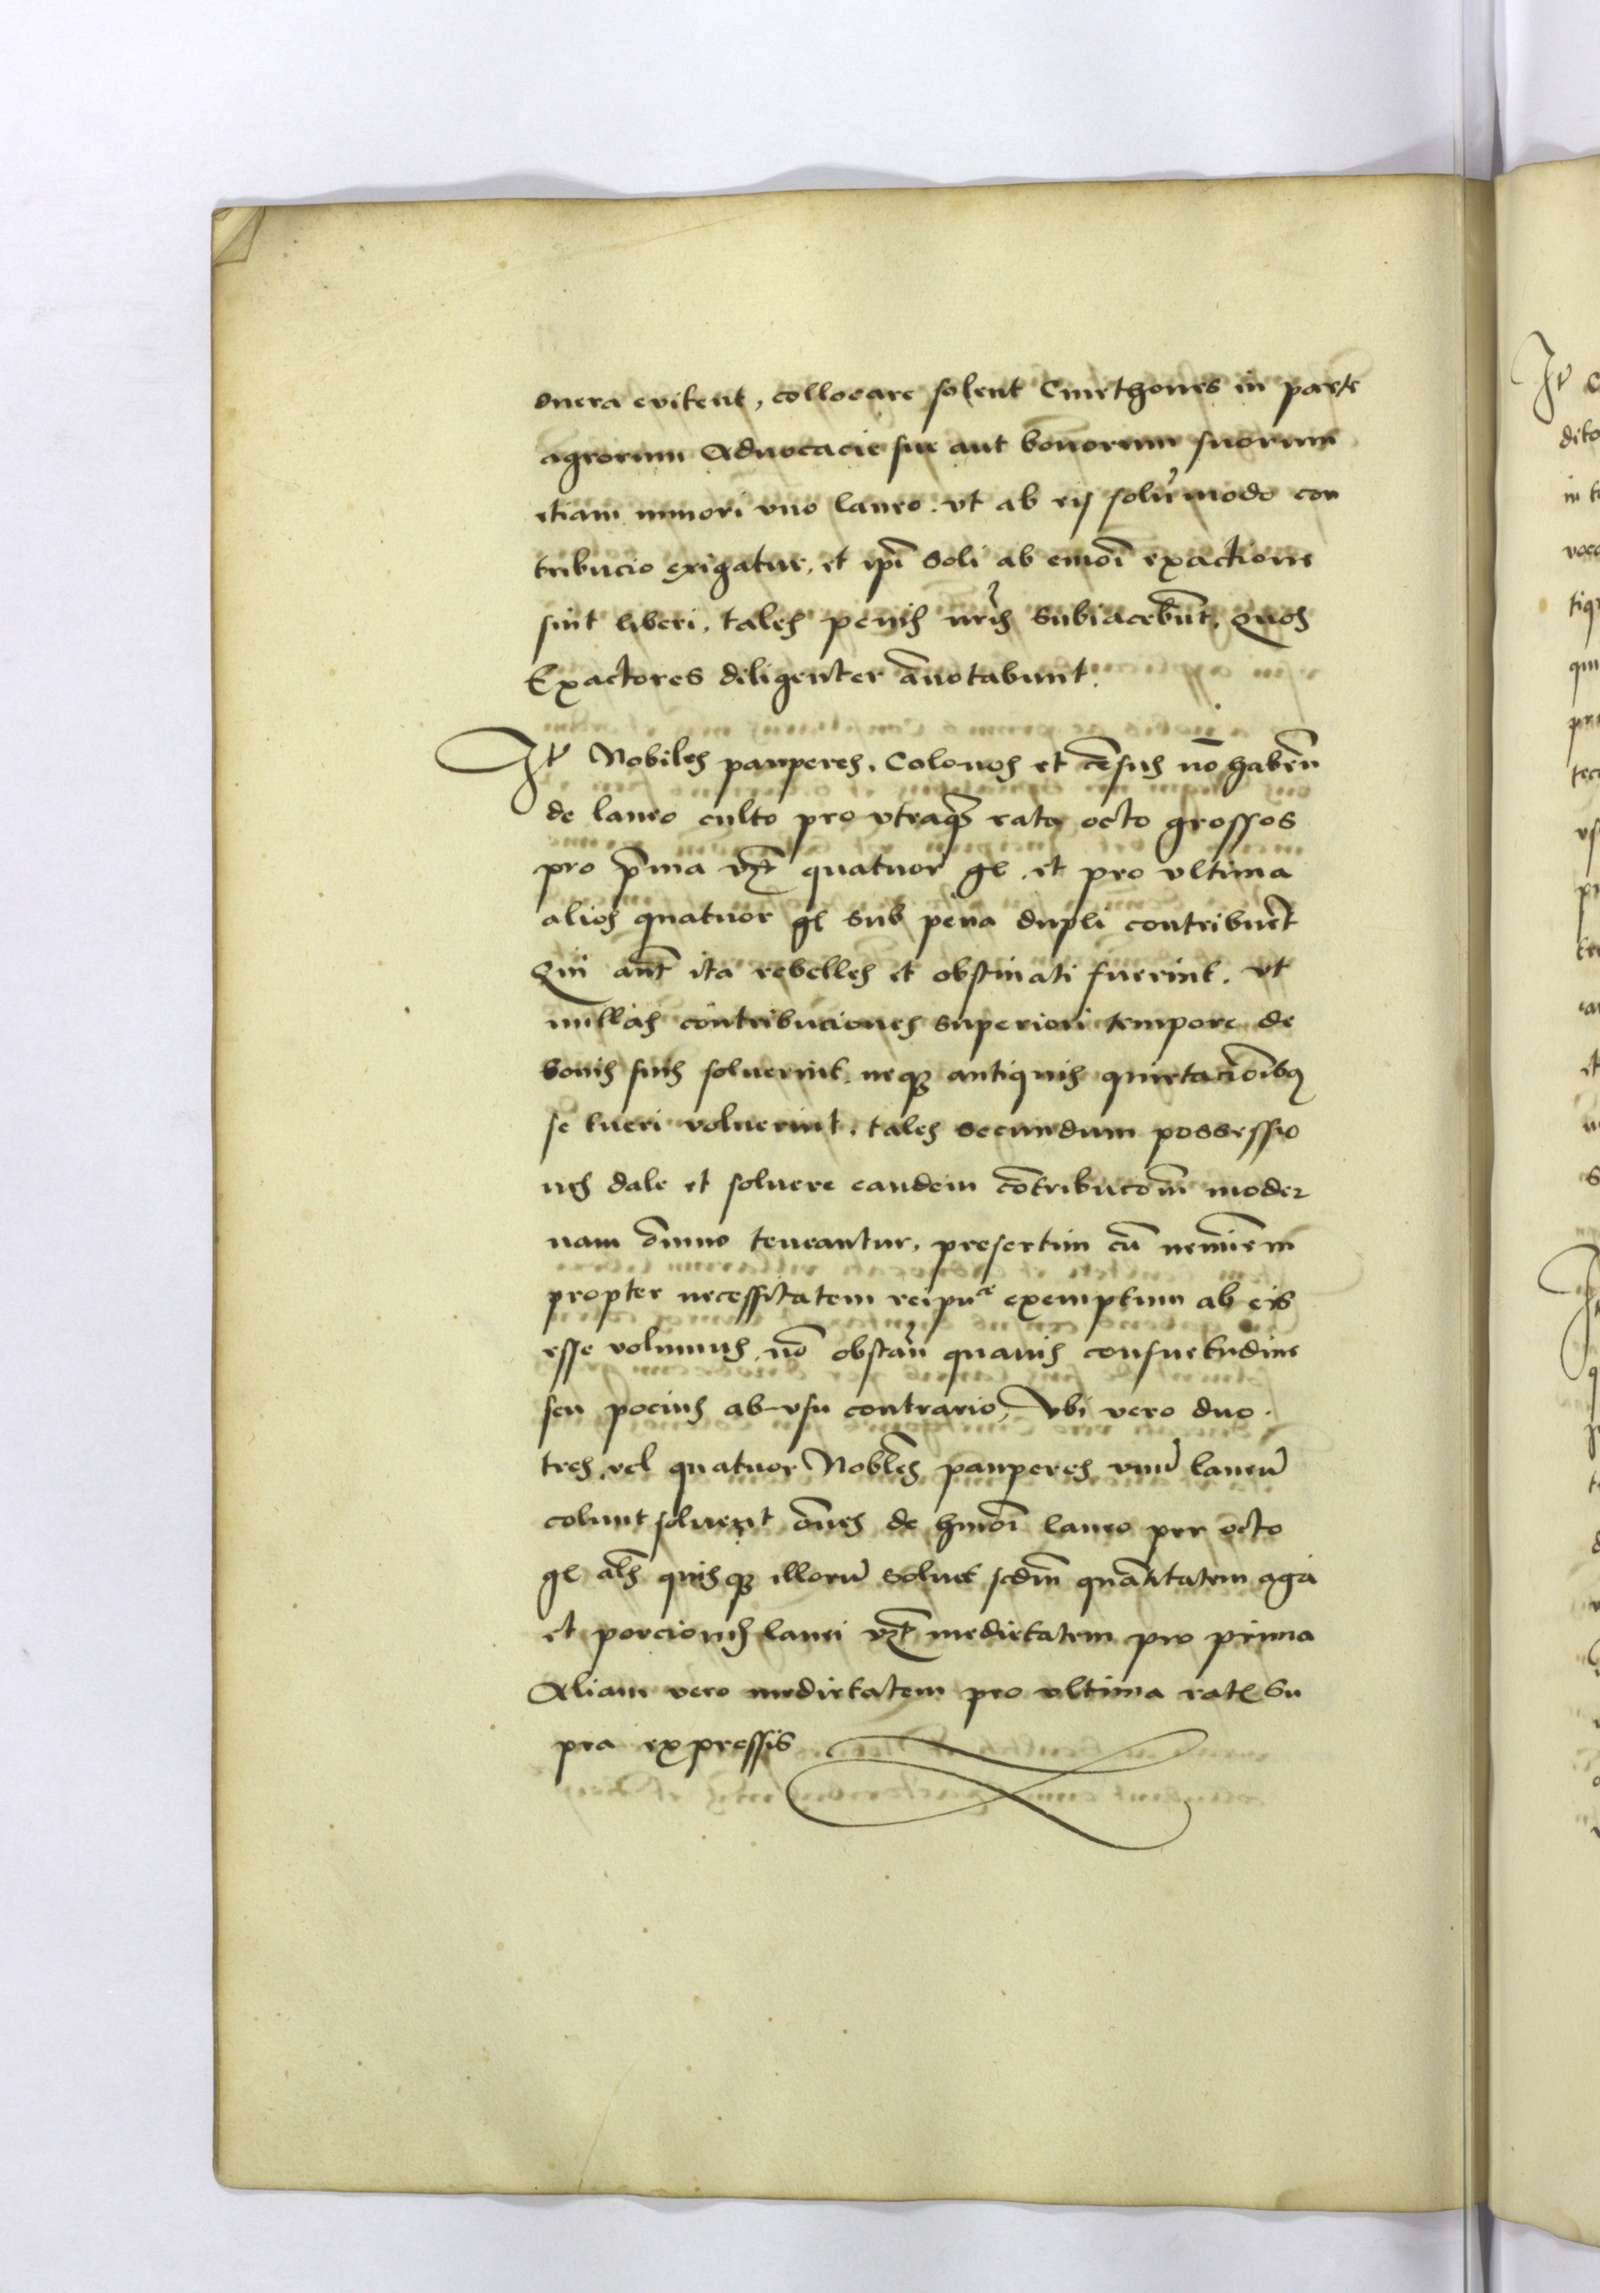 onera evitent, collocare solent Cmethones in parte
agrorum Advocacie sue aut bonorum suorum
etiam minori vno laneo. vt ab eis solūmodo con
tribucio exigatur, et ipī soli ab emōi exactione
sint liberi, tales penis nr̄is subiacebūnt, Quos
Exactores diligenter ānotabunt.
It Nobiles pauperes, Colonos et cēsus nō habēn
de laneo culto pro vtraqȝ rata octo grossos
pro p̄ma vꝫt quatuor gl et pro vltima
alios quatuor gl sub pena dupli contribuēt
Qui aūt ita rebelles et obstinati fuerint. vt
nullas contribuciones superiori tempore de
bonis suis soluerint. neqȝ antiquis quietaciōibꝯ
se tueri voluerint, tales secundum possessio
nes dale et soluere eandem cōtribucōm moder
nam ōmno teneantur, presertim cū neminem
propter necessitatem reipuᶜᵉ exemptum ab eis
esse volumus, nō obstāñ quauis consuetudine
seu pocius ab vsu contrario, Vbi vero duo.
tres, vel quatuor Nobl̄es pauperes vnū laneū
colunt soluent ōnes de hmōi laneo per octo
gl al̄s quisqȝ illorū soluet scdm̄ quātitatem agri
et porcionis lanei vꝫt medietatem pro prima
Aliam vero medietatem pro vltima ratꝭ su
pra expressis